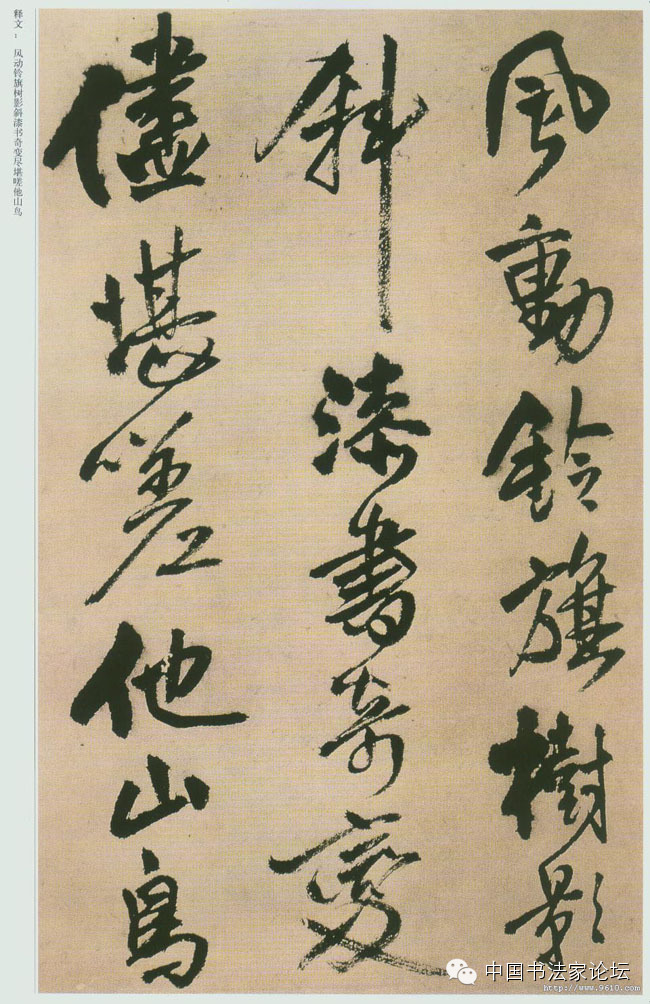 風動鈴旗樹影
斜漆書奇變
儘堪嗟他山鳥
释文：风动铃旗树影斜漆书奇变尽堪嗟他山鸟
中国书法家论坛
http://www.9610.com